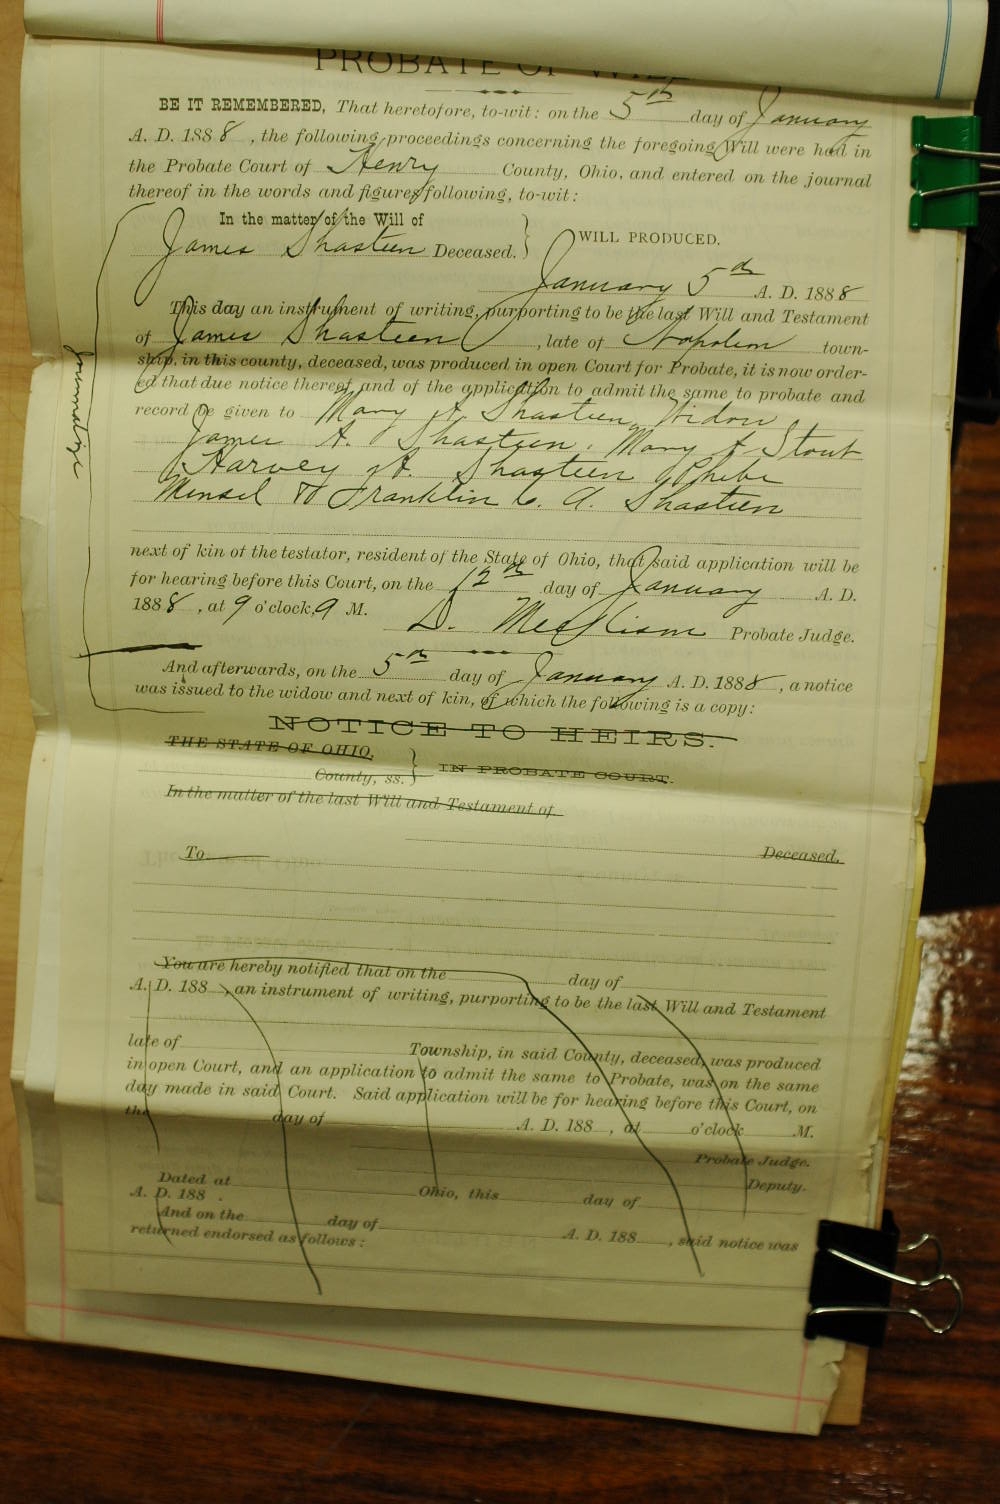 PROBATE OF WILL
BE IT REMEMBERED, That heretofore, to-wit: on the 5th day of January
A. D. 1888, the following proceedings concerning the foregoing Will were had in
the Probate Court of Henry County, Ohio, and entered on the journal
thereof in the words and figures following, to-wit:
In the matter of the Will of
James Shasteen Deceased. } WILL PRODUCED.
January 5th A. D. 1888
This day an instrument of writing, purporting to be the last Will and Testament
of James Shasteen, late of Napoleon town-
ship, in this county, deceased, was produced in open Court for Probate, it is now order-
ed that due notice thereof and of the application to admit the same to probate and
record be given to Mary A. Shasteen, Widow
James A. Shasteen, Mary J. Stout
Harvey H. Shasteen Phebe
Mensel & Franklin C. A. Shasteen
next of kin of the testator, resident of the State of Ohio, that said application will be
for hearing before this Court, on the 12th day of January A. D.
1888, at 9 o'clock, A M.
D. Meekison Probate Judge.
And afterwards, on the 5th day of January A. D. 1888, a notice
was issued to the widow and next of kin, of which the following is a copy:
NOTICE TO HEIRS.
THE STATE OF OHIO,
County, ss. } IN PROBATE COURT.
In the matter of the last Will and Testament of
Deceased.
To
You are hereby notified that on the day of
A. D. 188 , an instrument of writing, purporting to be the last Will and Testament
late of Township, in said County, deceased, was produced
in open Court, and an application to admit the same to Probate, was on the same
day made in said Court. Said application will be for hearing before this Court, on
the day of A. D. 188 , at o'clock M.
Probate Judge.
Deputy.
Dated at Ohio, this day of
A. D. 188 .
And on the day of A. D. 188 , said notice was
returned endorsed as follows: